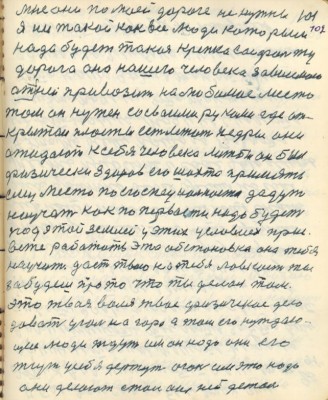 мне они по моей дороге не нужны
107
я ни такой как все люди которым
надо будет такая крепка
дорога она нашего человека
привозит на любимое место
там он нужен со своими руками где от-
крытои пласты недры они
ожидают к себя человека он был
физически здаров его шахта примит
место по специальности дадут
научат как по первасти надо будет
под этой землей у этих условиях при-
работать это обстановка она тебя
научит даст твою на тебя ты
забудиш про то что ты делал там
это твая воля твое физическое дело
давать угол на гора а там его нуждаю-
щие люди ждут им он надо они его
жгут у себя держут огон им это надо
они делают стал из ней детал